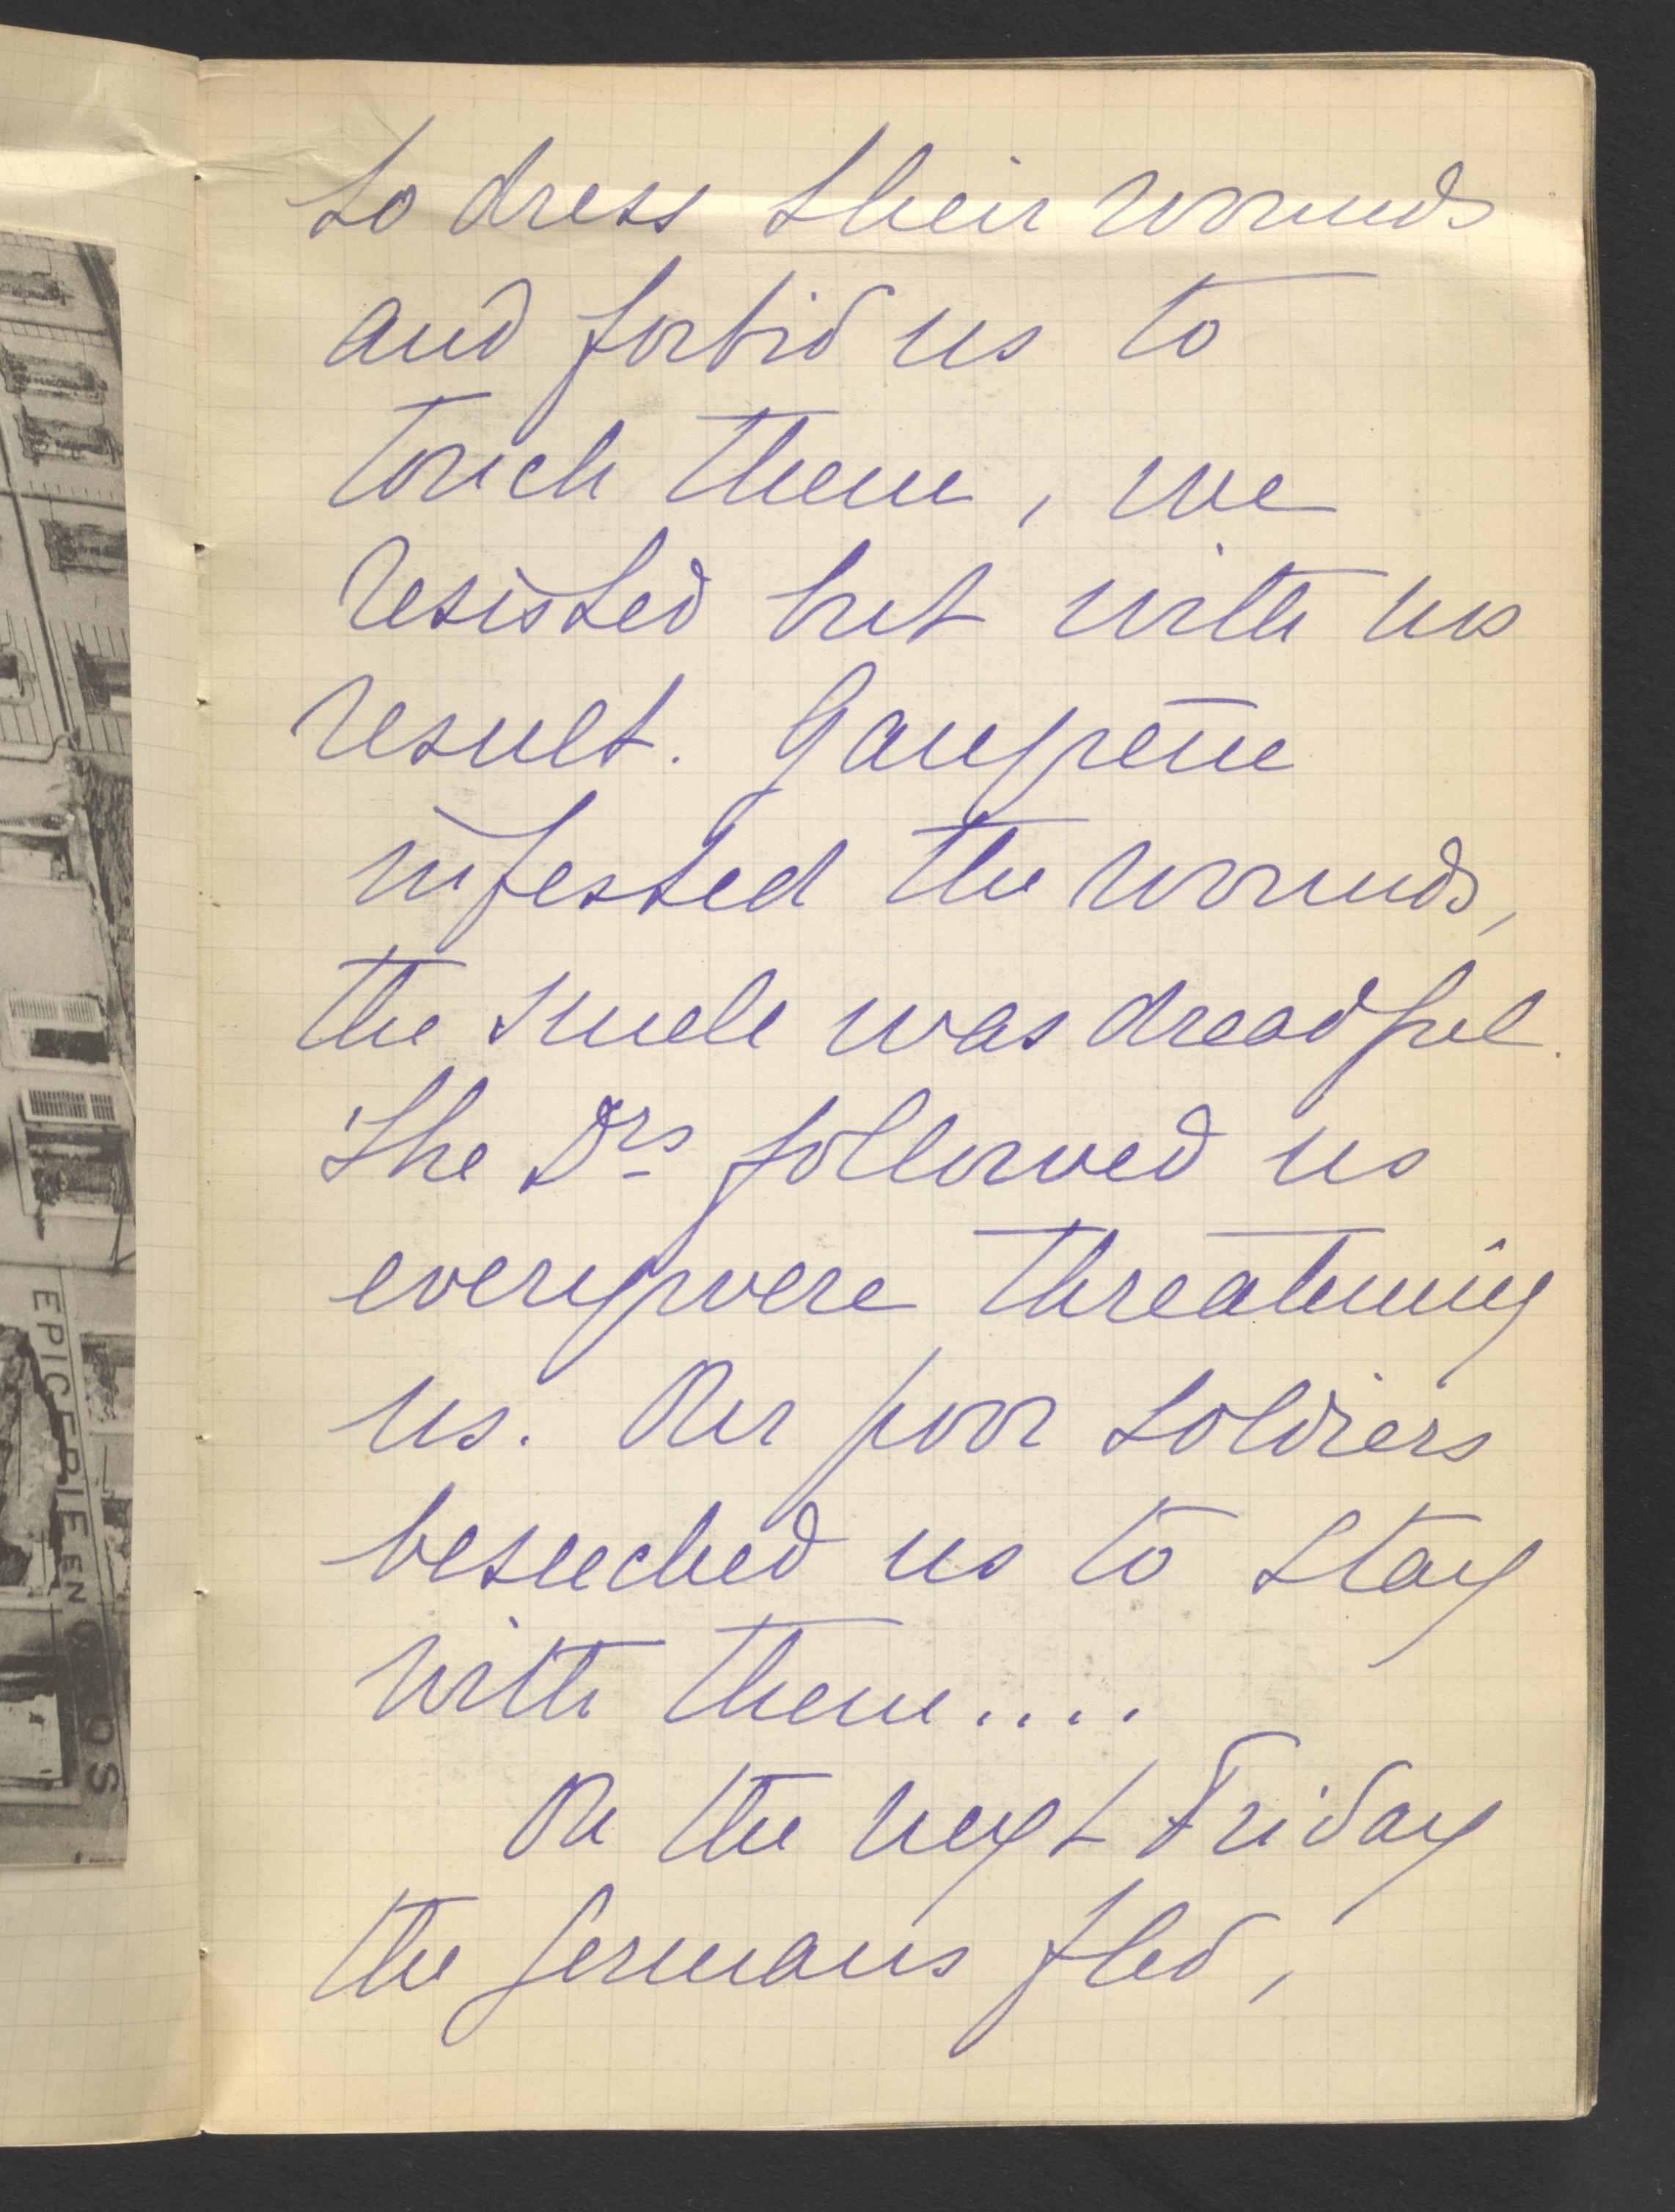 to dress their wounds
and forbid us to
touch them, we
resisted but with no
result. Gangrene
infested the wounds,
the smell was dreadful.
The Drs followed us
everywere threatening
us. Our poor soldiers
beseeched us to stay
with them....
On the next Friday
the Germans fled,
EPICERIE EN GROS